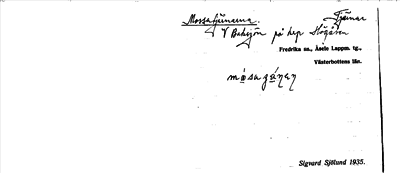 Mossatjärnarna. Tjärnar
V Baksjön på hep Högåsen
Fredrika sn., Åsele Lappm. tg.,
Västerbottens län.
Sigvard Sjölund 1935.